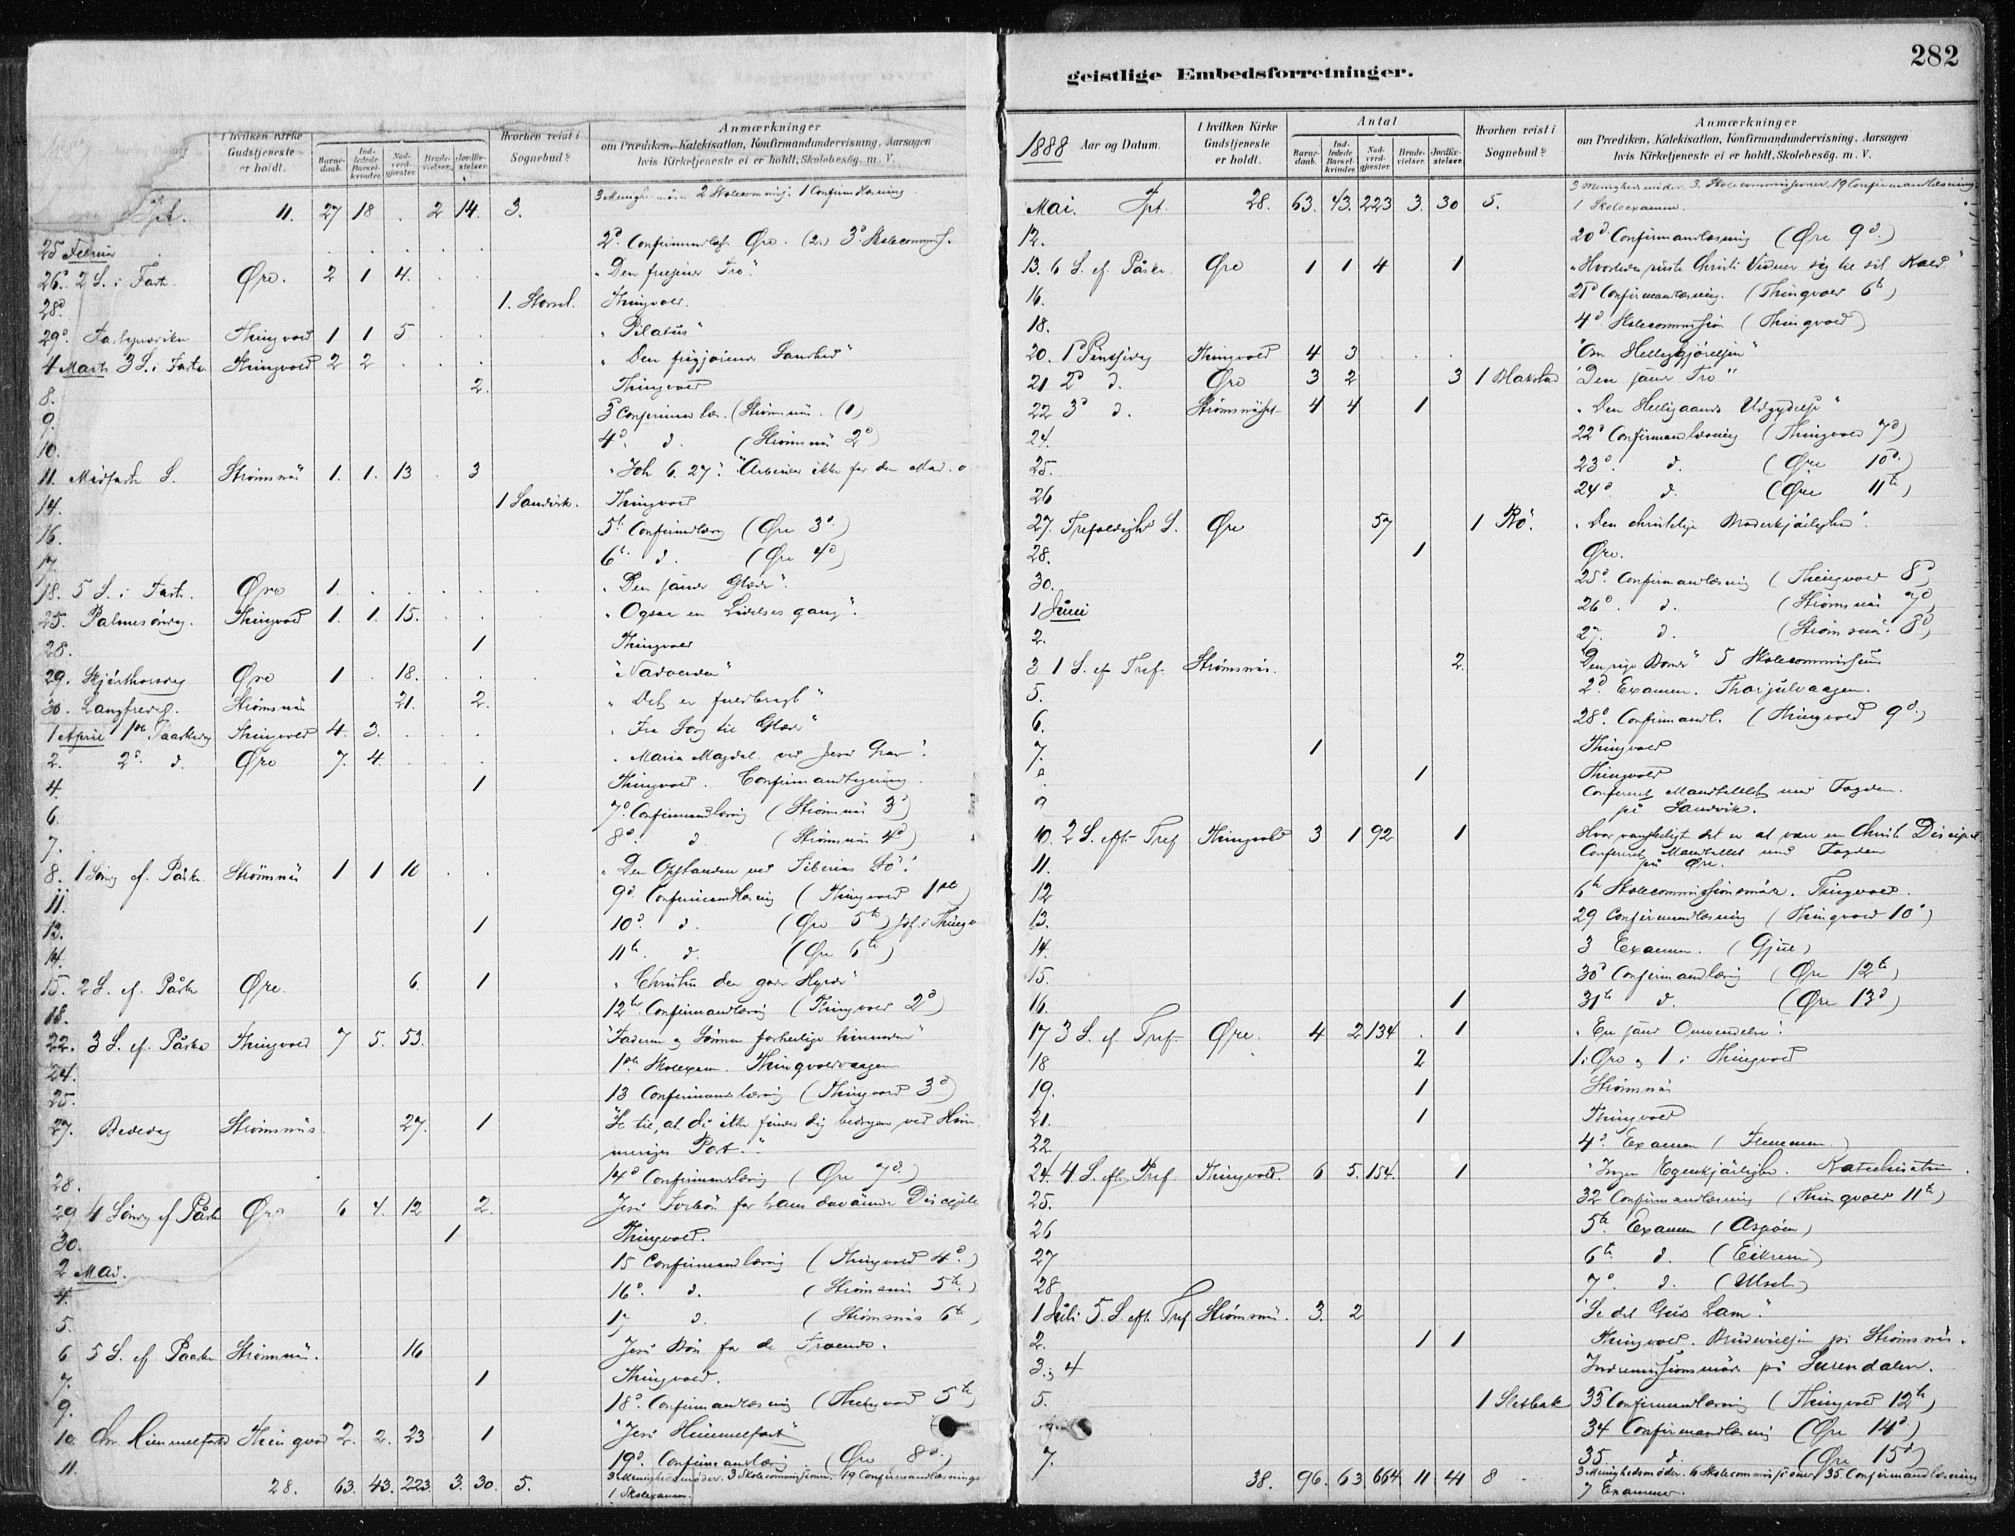 282
geistlige Embedsforretninger.
I hvilken Kirke Gudstjeneste er holdt.
Barnedaab. Indledede Barselkvinder. Nadverdgjester. Brudevielser. Jordfæstelser.
Hvorhen reist i Sognebud?
Anmærkninger
om Prædiken, Katekisation, Konfirmandundervisning, Aarsagen
hvis Kirketjeneste ei er holdt, Skolebesög. m. V.
11. 27 18 . 2 14. 3. 2 Skolecommis. 1 Confirmandlæsning
25 Februar 2d. Confirmandlæs. Øre. 3d Skolecommis.
26d 2 S. i Fast. Øre. 2 1 4. "Den frelsende Tro."
28d 1. Thingvold.
29d. Fasteprædiken Thingvold 1 1 5 "Pilatus"
4 Marts 3 S. i Faste Thingvold 2 2 "Den frigjørende Sandhed"
8. 2. Thingvold
9. 3d Confirmandlæs. (Strömsnäs. (1)
10. 4d. d. (Strömsnäs 2d)
11. Midfaste S. Strömsnäs 1. 1. 13 3 "Joh 6. 27. "Arbeider ikke for den Mad.
14. 1 Sandvik. Thingvold
16. 5te Confirmdlæsng (Øre 3d.)
17. 6te d. (Øre 4d)
18. 5 S. i Fast. Øre 1. "Den sande Glæde".
25. Palmesöndag. Thingvold 1. 1. 15. "Ogsaa en Lidelses gang".
28. 1 Thingvold
29. Skjærthorsdag Øre 1 18. "Nadverden"
30. Langfredag. Strömsnäs 21. 2. "Det er fuldbragt"
1 April 1ste Paaskedag Thingvold 4. 3. "Fra Sorg til Glæde"
2. 2d. d. Øre 7. 4. "Maria Magdal. ved Jesu Grav".
4. 1 Thingvold. Confirmandlæsning.
6. 7d. Confirmandlæsning (Strömsnäs 3d)
7. 8d. d. (Strömsnäs 4d)
8. 1 Söndg ef. Påske Strömsnäs 1 1 10 "Den Opstandne ved Tiberias Sö".
11. 9d Confirmandlæsning (Thingvold 1ste)
13. 1 10d. d. (Øre 5te)
14. 11te d. (Øre 6te)
15. 2 S. ef. Påske Øre. 6. 1 "Christus den gode Hyrde"
18. 12te Confirmandlæsng (Thingvold 2d)
22. 3 S. ef. Påske Thingvold 7 5. 53. "Faderen og Sönnen forherlige hinanden"
24. 1ste Skolexam. Thingvoldvaagen
25. 13 Confirmandlæsng (Thingvold 3d)
27. Bededag Strömsnäs. 27. 1 "Se til, at du ikke finder dig bedragen ved Him
meriges Port."
28. 14d Confirmandlæsng (Øre 7d.)
29. 4 Söndg ef Påske Øre 6 4. 12 2. Jesu Forbön for hans daværende Disciple
30. 1 Thingvold.
2 Mai. 15 Confirmandlæsng (Thingvold 4d.)
4. 16d. d. (Strömsnäs 5te.)
5. 17 d. (Strömsnäs 6te)
6 5 S. ef Paaske Strömsnäs. 16 Jesu Bön for de Troende.
7. 1 Thingvold.
9. 18d. Confirmandlæsning (Thingvold 5te)
10. Chr. Himmelfartsd Thingvold 2. 2. 23 1 "Jesu Himmelfart"
11. 19d. Confirmandlæsng (Øre 8d.)
28. 63. 43. 223. 3. 30. 5. 3 Menighedsmöder. 3 Skolecommissioner. 19 Confirmandlæsninger
1 Skolexamen.
1888 Aar og Datum.
I hvilken Kirke Gudstjeneste er holdt.
Antal
Barnedaab. Indledede Barselkvinder. Nadverdgjester. Brudevielser. Jordfæstelser.
Hvorhen reist i Sognebud?
Anmærkninger
om Prædiken, Katekisation, Konfirmandundervisning, Aarsagen
hvis Kirketjeneste ei er holdt, Skolebesög. m. V.
Mai. Tpt. 28. 63. 43. 223 3. 30 5. 3 Menighedsmöder. 3. Skolecommissioner. 19 Confirmandlæsning.
1 Skoleexamen.
12. 20d Confirmandlæsning (Øre 9d.)
13. 6 S. ef. Påske Øre 1 1 4 1 "Hvorledes ruste Christi Vidner sig til sit Kald"
16. 21d Confirmandlæsning. (Thingvold 6te)
18. 4d Skolecommission (Thingvold)
20. 1ste Pintsedag Thingvold 4 3 "Om Helliggjörelsen"
21 2d d. Øre 3 2 3 1 Blakstad "Den sande Tro"
22 3d d. Strömsnäset 4 4 1 "Den Helligaands Udgydelse"
24. 22d Confirmandlæsning (Thingvold 7d)
25. 23d. d. (Øre 10d.)
26 24d. d. (Øre 11te)
27. Trefoldigheds S. Øre 57 1 Rö. "Den christelige Broderkjærlighed".
28. 1 Øre.
30. 25d. Confirmandlæsning (Thingvold 8d)
1 Juni 26d. d. (Strömsnäs 7d)
2. 27. d. (Strömsnäs. 8d)
3 1 S. ef Tref. Strömsnäs. 2. Den rige Bonde" 5 Skolecommission
5. 2d. Examen. Thorjulvaagen.
6. 28d. Confirmandl. (Thingvold 9d.)
7. 1 Thingvold
1 Thingvold
9 Confereret Mandtallet med Fogden.
på Sandvik.
10. 2 S. eft. Tref Thingvold 3 1 92 1 Hvor vanskeligt det er at være en Christi Discipel
11. Confereret Mandtallet med Fogden
på Øre.
12 6te Skolecommissionsmöde. Thingvold.
13. 29 Confirmandlæsning (Thingvold 10d)
14. 3 Examen. (Gjul)
15. 30d Confirmandlæsng (Øre 12te)
16. 1 31te d. (Øre 13d)
17 3 S. ef. Tref. Øre. 4 2 134 . 1 "En sand Omvendelse".
18 2 1 i Øre og 1 i Thingvold
19. 1 Strömsnäs
21. 1 Thingvold
22. 4d. Examen (Flemmen)
24. 4 S. eft. Tref. Thingvold. 6 5. 154. 1 "Ingen Egenkjærlighed. Katechisation.
25. 32 Confirmandlæsning (Thingvold 11te)
26 5te Examen (Aspöen)
27 6te. d. (Eikrem)
28. 7d. d. (Ulset)
1 Juli 5. S. eft. Tref Strömsnäs. 3. 2 "Se det Guds Lam."
2. 1 1 Thingvold. Brudevielsen på Strömsnäs.
3. 4 Indremissionsmöde på Surendalen.
5. 1 Sletbak 33 Confirmandlæsng (Thingvold 12te)
34 Confirmandlæsning (Øre 14d)
7. 35 d. (Øre 15d)
38. 96. 63. 664. 11 41 8 3 Menighedsmöder. 6 Skolecommissioner. 35 Confirmandlæsning
7 Examener.